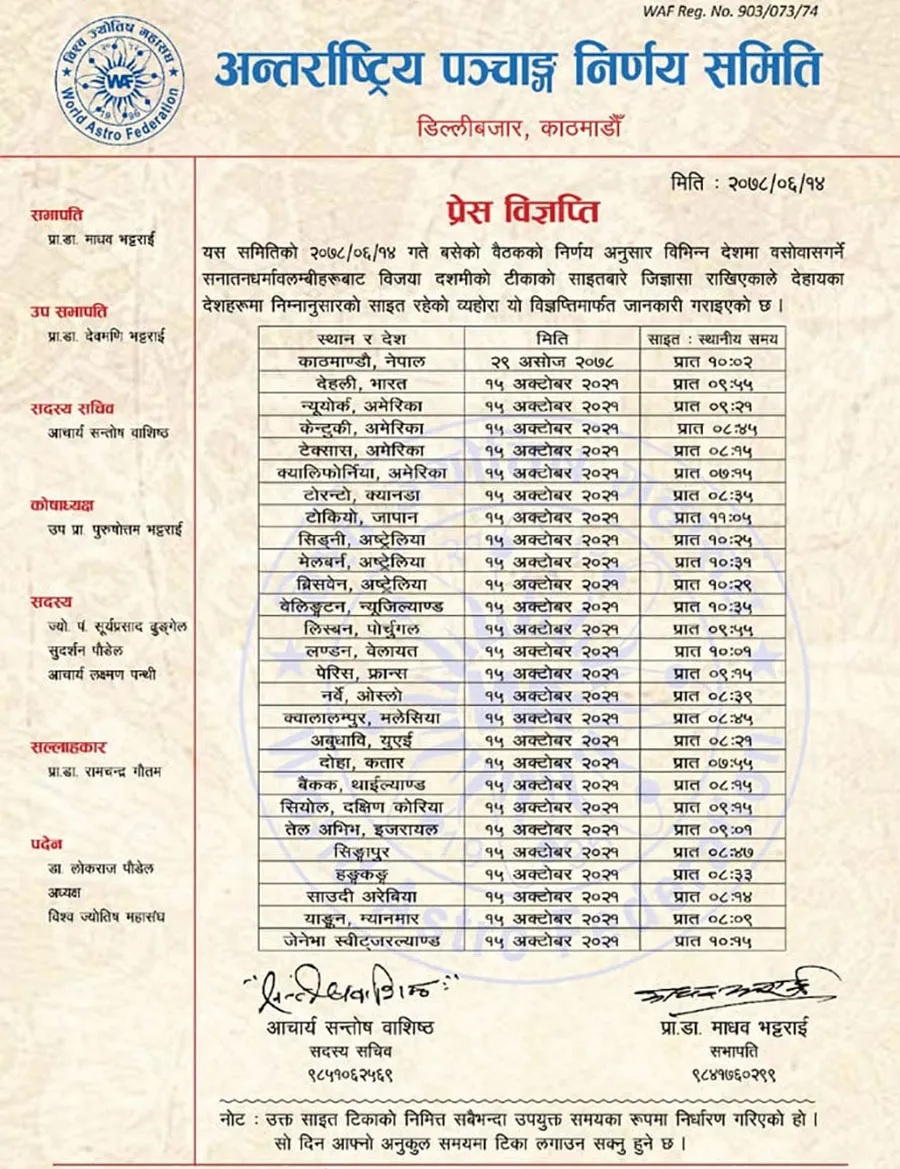 WAF Reg. No. 903/073/74
विश्व ज्योतिष महासंघ
WAF
1996
World Astro Federation
अन्तर्राष्ट्रिय पञ्चाङ्ग निर्णय समिति
डिल्लीबजार, काठमाडौँ
मिति : २०७८/०६/१४
प्रेस विज्ञप्ति
यस समितिको २०७८/०६/१४ गते बसेको वैठकको निर्णय अनुसार विभिन्न देशमा वसोवासगर्ने
सनातनधर्मावलम्बीहरूबाट विजया दशमीको टीकाको साइतबारे जिज्ञासा राखिएकाले देहायका
देशहरूमा निम्नानुसारको साइत रहेको व्यहोरा यो विज्ञप्तिमार्फत जानकारी गराइएको छ ।
सभापति
प्रा.डा. माधव भट्टराई
उप सभापति
प्रा.डा. देवमणि भट्टराई
सदस्य सचिव
आचार्य सन्तोष वाशिष्ठ
कोषाध्यक्ष
उप प्रा. पुरुषोत्तम भट्टराई
सदस्य
ज्यो. पं. सूर्यप्रसाद ढुङ्गेल
सुदर्शन पौडेल
आचार्य लक्ष्मण पन्थी
सल्लाहकार
प्रा.डा. रामचन्द्र गौतम
पदेन
डा. लोकराज पौडेल
अध्यक्ष
विश्व ज्योतिष महासंघ
स्थान र देश मिति साइत : स्थानीय समय
काठमाण्डौ, नेपाल २९ असोज २०७८ प्रात १०:०२
देहली, भारत १५ अक्टोबर २०२१ प्रात ०९:५५
न्यूयोर्क, अमेरिका १५ अक्टोबर २०२१ प्रात ०९:२१
केन्टुकी, अमेरिका १५ अक्टोबर २०२१ प्रात ०८:४५
टेक्सास, अमेरिका १५ अक्टोबर २०२१ प्रात ०८:१५
क्यालिफोर्निया, अमेरिका १५ अक्टोबर २०२१ प्रात ०७:१५
टोरन्टो, क्यानडा १५ अक्टोबर २०२१ प्रात ०८:३५
टोकियो, जापान १५ अक्टोबर २०२१ प्रात ११:०५
सिड्नी, अष्ट्रेलिया १५ अक्टोबर २०२१ प्रात १०:२५
मेलबर्न, अष्ट्रेलिया १५ अक्टोबर २०२१ प्रात १०:३१
ब्रिसवेन, अष्ट्रेलिया १५ अक्टोबर २०२१ प्रात १०:२९
वेलिङ्टन, न्यूजिल्याण्ड १५ अक्टोबर २०२१ प्रात १०:३५
लिस्बन, पोर्चुगल १५ अक्टोबर २०२१ प्रात ०९:५५
लण्डन, वेलायत १५ अक्टोबर २०२१ प्रात १०:०१
पेरिस, फ्रान्स १५ अक्टोबर २०२१ प्रात ०९:१५
नर्वे, ओस्लो १५ अक्टोबर २०२१ प्रात ०८:३९
क्वालालम्पुर, मलेसिया १५ अक्टोबर २०२१ प्रात ०८:४५
अबुधावि, युएई १५ अक्टोबर २०२१ प्रात ०८:२१
दोहा, कतार १५ अक्टोबर २०२१ प्रात ०७:५५
बैंकक, थाईल्याण्ड १५ अक्टोबर २०२१ प्रात ०८:१५
सियोल, दक्षिण कोरिया १५ अक्टोबर २०२१ प्रात ०९:१५
तेल अभिभ, इजरायल १५ अक्टोबर २०२१ प्रात ०९:०१
सिङ्गापुर १५ अक्टोबर २०२१ प्रात ०८:४७
हङ्कङ्ग १५ अक्टोबर २०२१ प्रात ०८:३३
साउदी अरेबिया १५ अक्टोबर २०२१ प्रात ०८:१४
याङ्गून, म्यानमार १५ अक्टोबर २०२१ प्रात ०८:०९
जेनेभा स्वीट्जरल्याण्ड १५ अक्टोबर २०२१ प्रात १०:१५
आचार्य सन्तोष वाशिष्ठ
सदस्य सचिव
९८५१०६२५६९
प्रा.डा. माधव भट्टराई
सभापति
९८४१७६०२९९
नोट : उक्त साइत टिकाको निमित्त सबैभन्दा उपयुक्त समयका रूपमा निर्धारण गरिएको हो ।
सो दिन आफ्नो अनुकुल समयमा टिका लगाउन सक्नु हुने छ ।